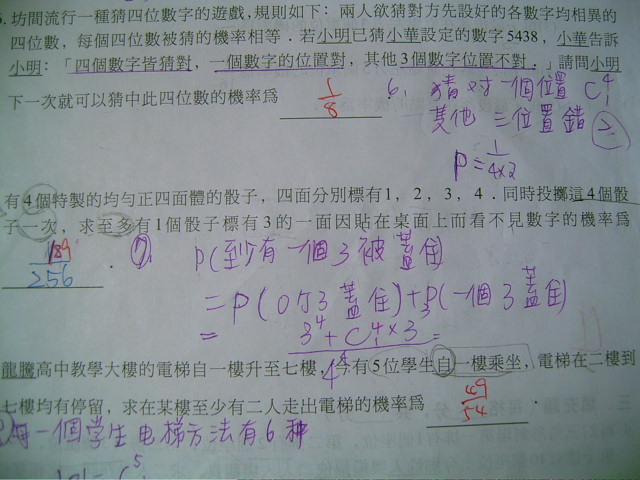 坊間流行一種猜四位數字的遊戲,規則如下：兩人欲猜對方先設好的各數字均相異的
四位數，每個四位數被猜的機率相等．若小明已猜小華設定的數字5438，小華告訴
小明：「四個數字皆猜對，一個數字的位置對，其他3個數字位置不對．」請問小明
下一次就可以猜中此四位數的機率為 1/8 .
6. 猜对一個位置 C⁴₁
其他 三位置錯 2
P = 1/4×2
有4個特製的均勻正四面體的骰子，四面分別標有1，2，3，4．同時投擲這4個骰
子一次，求至多有1個骰子標有3的一面因貼在桌面上而看不見數字的機率為
189/256 .
7. P(至少有一個3被蓋住)
= P(0個3蓋住)+P(一個3蓋住)
= 3⁴+C⁴₁×3³ / 4⁴ =
龍騰高中教學大樓的電梯自一樓升至七樓，今有5位學生自一樓乘坐，電梯在二樓到
七樓均有停留，求在某樓至少有二人走出電梯的機率為 49/54 .
每一個学生电梯方法有6种